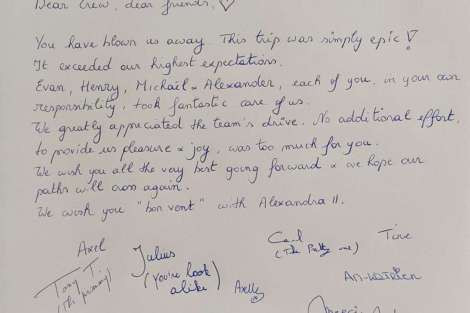 Dear Crew, dear friends, ♡
You have blown us away. This trip was simply epic!
It exceeded our highest expectations.
Evan, Henry, Michaël & Alexander, each of you, in your own
responsibility, took fantastic care of us.
We greatly appreciated the team's drive. No additional effort,
to provide us pleasure & joy, was too much for you.
We wish you all the very best going forward & we hope our
paths will cross again.
We wish you "bon vent" with Alexandra II.
Axel
Julius
(You're look
alike)
Tony T.
(The primary)
Axelle
(The Pretty one)
Tine
An-Katrien